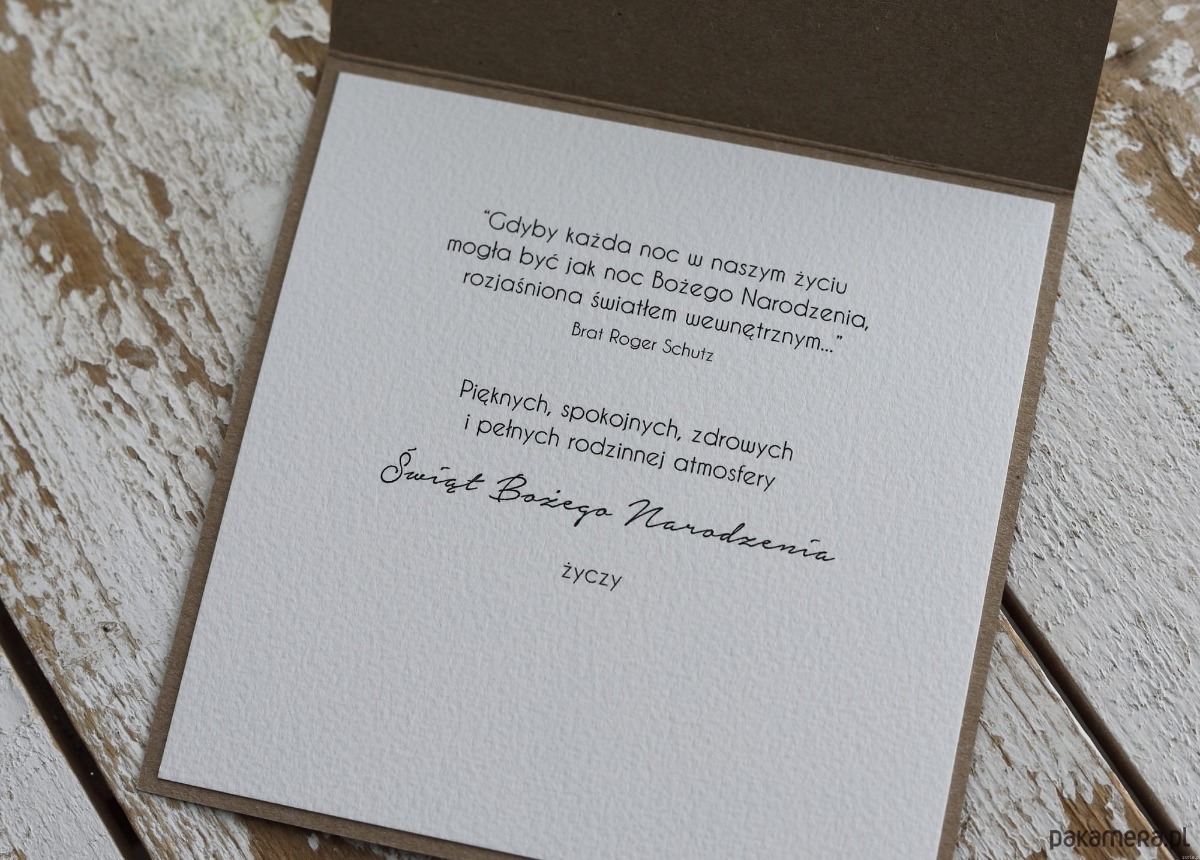 “Gdyby każda noc w naszym życiu
mogła być jak noc Bożego Narodzenia,
rozjaśniona światłem wewnętrznym...”
Brat Roger Schutz
Pięknych, spokojnych, zdrowych
i pełnych rodzinnej atmosfery
Świąt Bożego Narodzenia
życzy
pakamera.pl